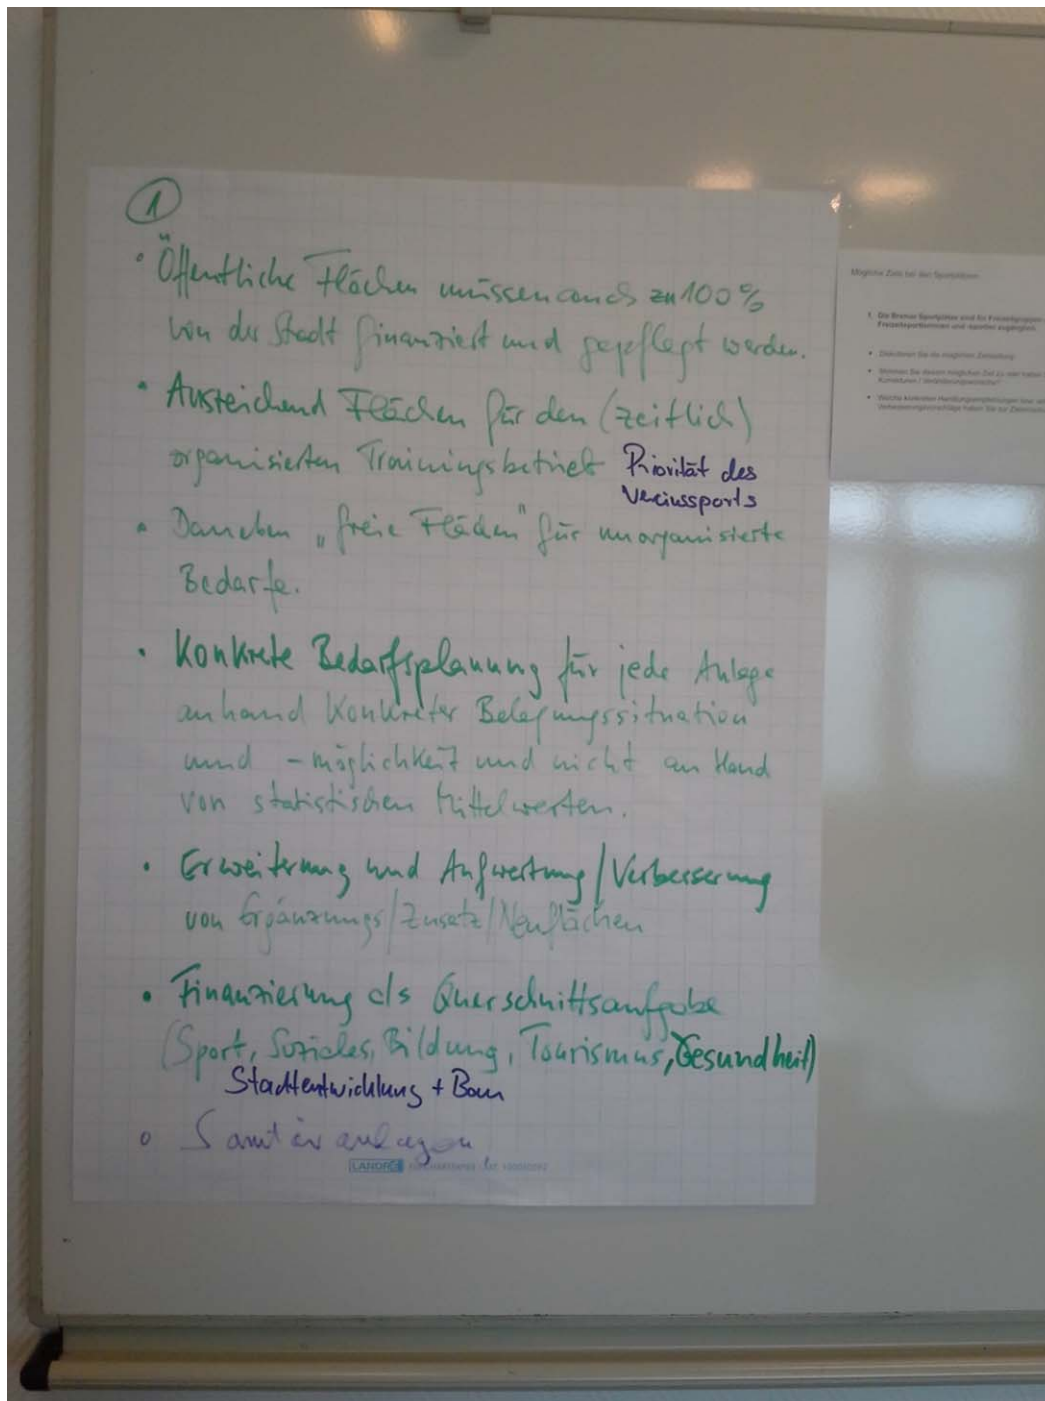 1
• Öffentliche Flächen müssen auch zu 100%
von der Stadt finanziert und gepflegt werden.
• Ausreichend Flächen für den (zeitlich)
organisierten Trainingsbetrieb Priorität des
Vereinssports
• Daneben „freie Flächen" für unorganisierte
Bedarfe.
• Konkrete Bedarfsplanung für jede Anlage
anhand konkreter Belegungssituation
und -möglichkeit und nicht an Hand
von statistischen Mittelwerten.
• Erweiterung und Aufwertung/Verbesserung
von Ergänzungs/Zusatz/Neuflächen
• Finanzierung als Querschnittsaufgabe
(Sport, Soziales, Bildung, Tourismus, Gesundheit)
Stadtentwicklung + Bau
o Sanitäranlagen
LANDRÉ
Mögliche Ziele bei den Sportplätzen
1. Die Bremer Sportplätze sind für
• Diskutieren Sie die mögliche Zielsetzung
• Stimmen Sie diesem möglichen Ziel zu oder
Korrekturen / Veränderungswünsche?
• Welche konkreten Handlungsempfehlungen
haben Sie zur